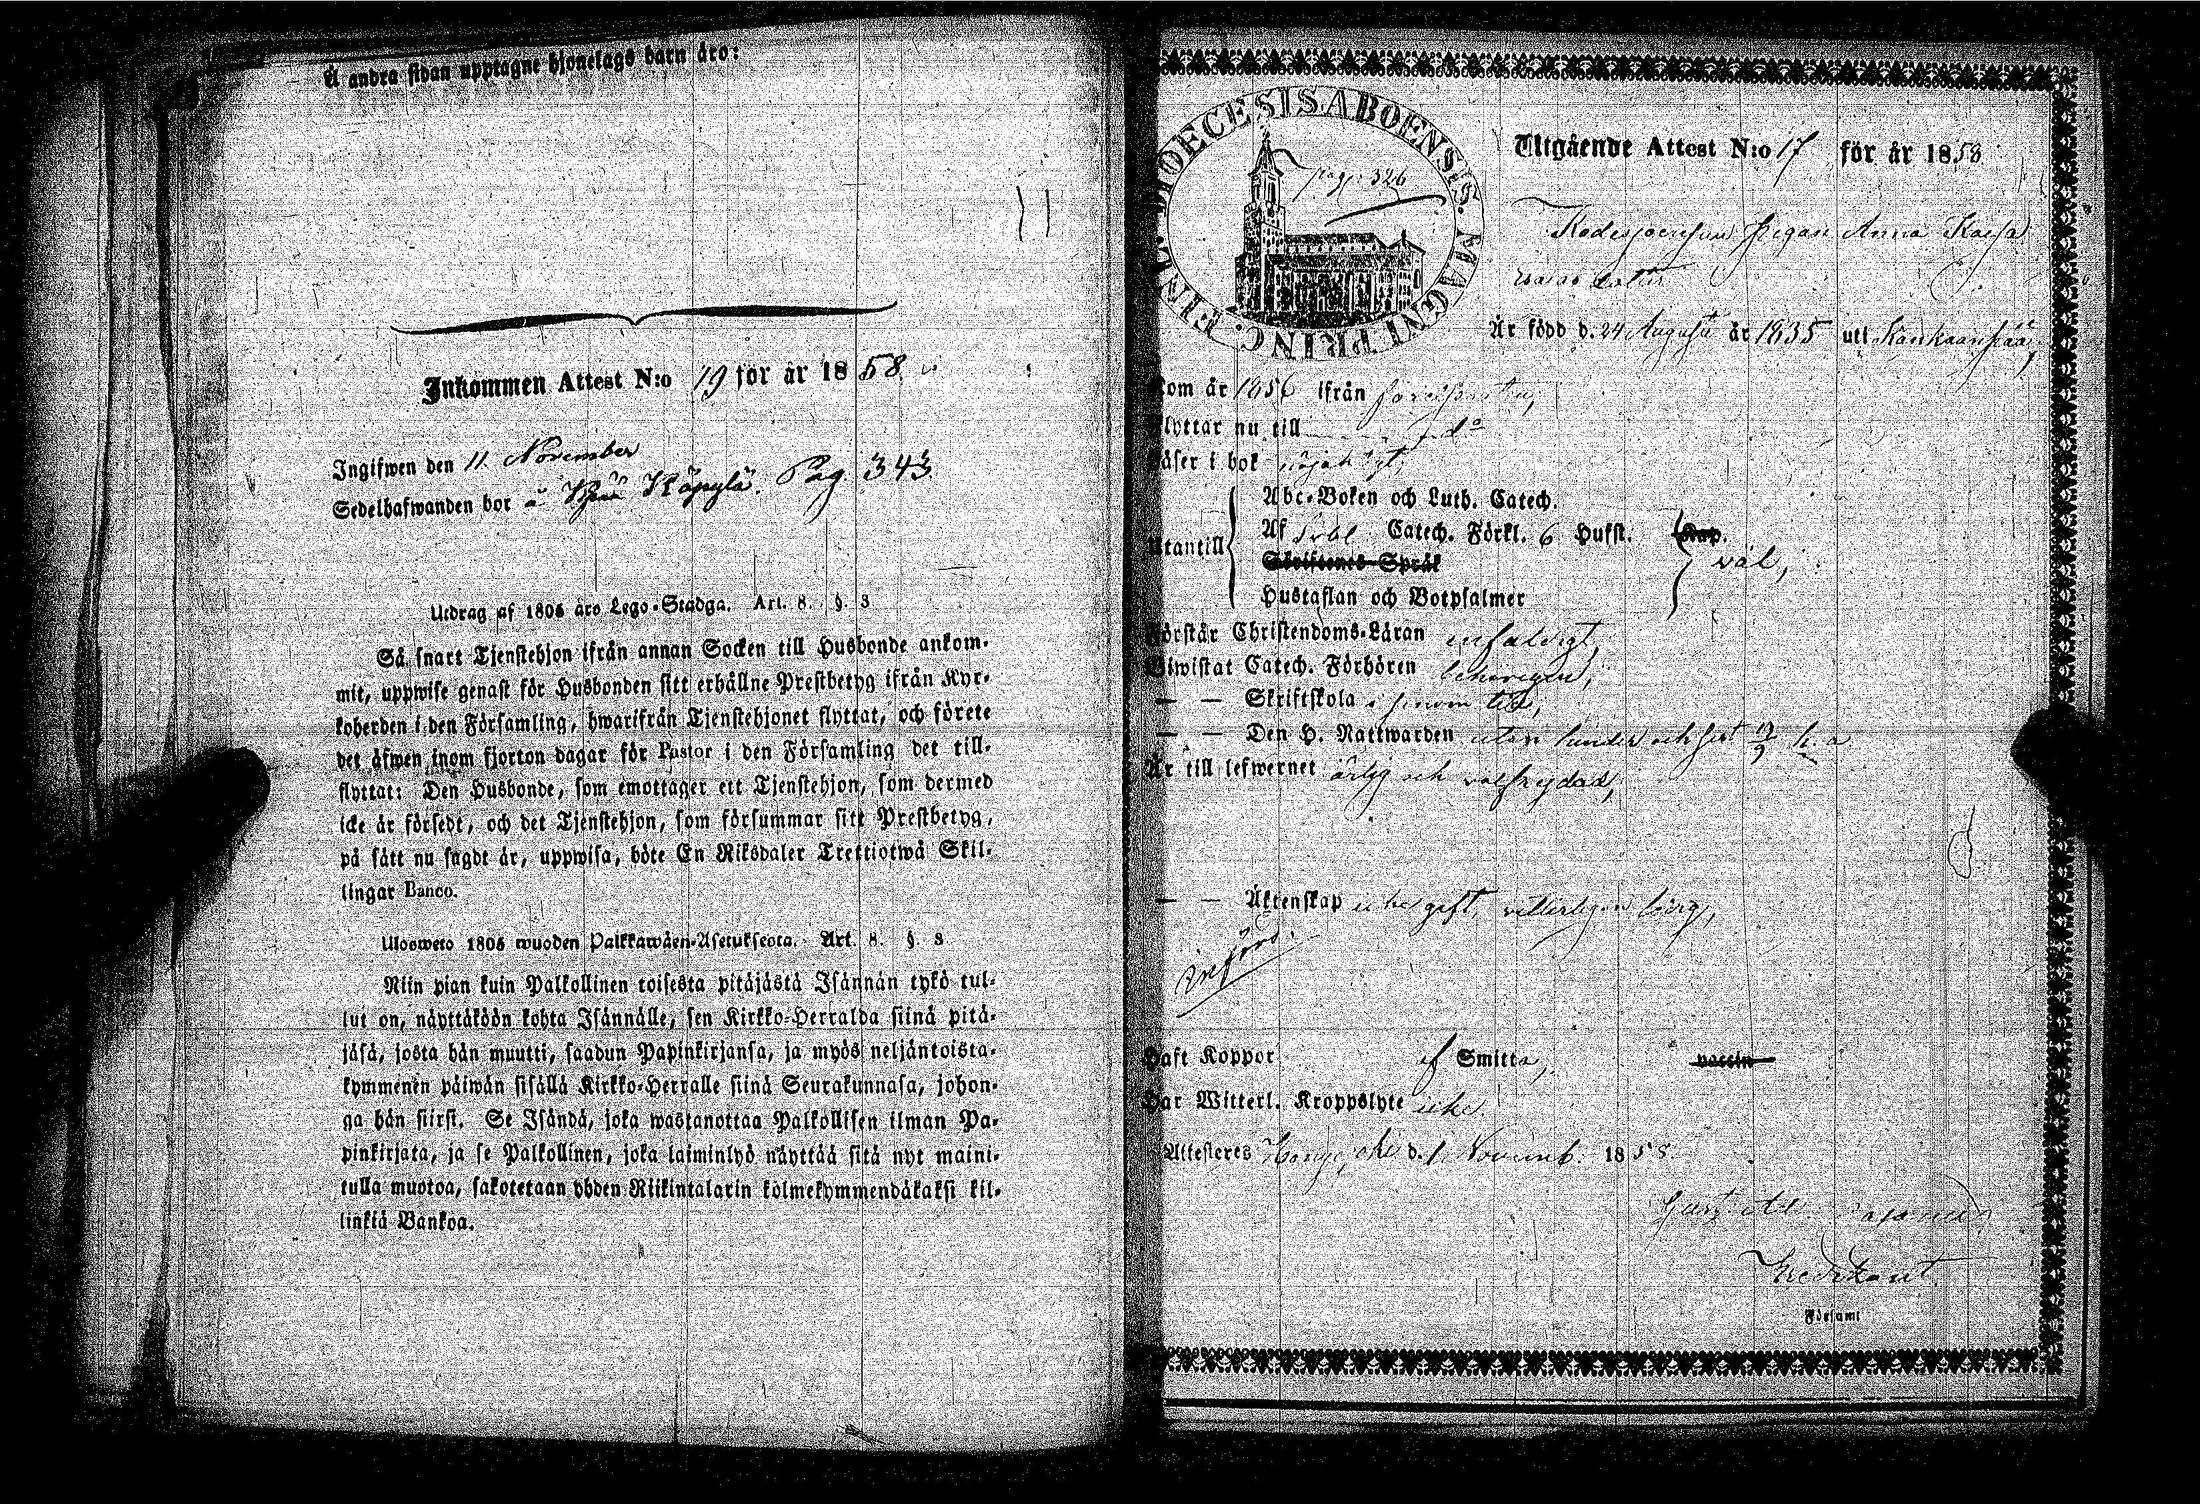 å andra sidan upptagne hjonelags barn äro:
Inkommen Attest N:o 19 för år 1858
Ingifwen den 11 November
Sedelhafwanden bor å Köpylä. Pag. 343.
Utdrag af 1805 års Lego-Stadga. Art. 8. §. 3
Så snart Tjenstehjon ifrån annan Socken till Husbonde ankom-
mit, uppwise genast för Husbonden sitt erhållne Prestbetyg ifrån Kyr-
koherden i den Församling, hwarifrån Tjenstehjonet flyttat, och förete
det äfwen inom fjorton dagar för Pastor i den Församling det till-
flyttat: Den Husbonde, som emottager ett Tjenstehjon, som dermed
icke är försedt, och det Tjenstehjon, som försummar sitt Prestbetyg,
på sätt nu sagdt är, uppwisa, böte En Riksdaler Trettiotwå Skil-
lingar Banco.
Ulosweto 1805 wuoden Palkkawäen-Asetuksesta. Art. 8. §. 3
Niin pian kuin Palkollinen toisesta pitäjästä Isännän tykö tul-
lut on, näyttäköön kohta Isännälle, sen Kirkko-Herralda siinä pitä-
jäsä, josta hän muutti, saadun Papinkirjansa, ja myös neljäntoista-
kymmenen päiwän sisällä Kirkko-Herralle siinä Seurakunnasa, johon-
ga hän siirsi. Se Isändä, joka wastanottaa Palkollisen ilman Pa-
pinkirjata, ja se Palkollinen, joka laiminlyö näyttää sitä nyt maini-
tulla muotoa, sakotetaan yhden Riikintalarin kolmekymmendäkaksi kil-
linkiä Bankoa.
DIOECESIS ABOENSIS. MAGNI PRINC. FINL.
pag. 326
Utgående Attest N:o 17 för år 1858
Pigan Anna Kaisa
Esaias dotter
Är född d. 24 Augusti år 1835 uti Kankaanpää,
Kom år 1856 ifrån
Flyttar nu till d:o
Läser i bok nöjaktigt,
Abc-Boken och Luth. Catech.
Utantill Af Svbl. Catech. Förkl. 6 Hufst. Kap.
Skriftenes Språk väl,
Hustaflan och Botpsalmer
Förstår Christendoms-Läran enfaldigt,
Biwistat Catech. Förhören behörigen,
— — Skriftskola i sinom tid,
— — Den H. Nattwarden utan hinder och sist 12/9 h. a
Är till lefwernet ärlig och välfrejdad,
— — Äktenskap icke gift, vitterligen ledig,
införd.
Haft Koppor af Smitta, vaccin
Har Witterl. Kroppslyte icke
Attesteres d. 1 Novemb. 1858
Predikant.
Församl